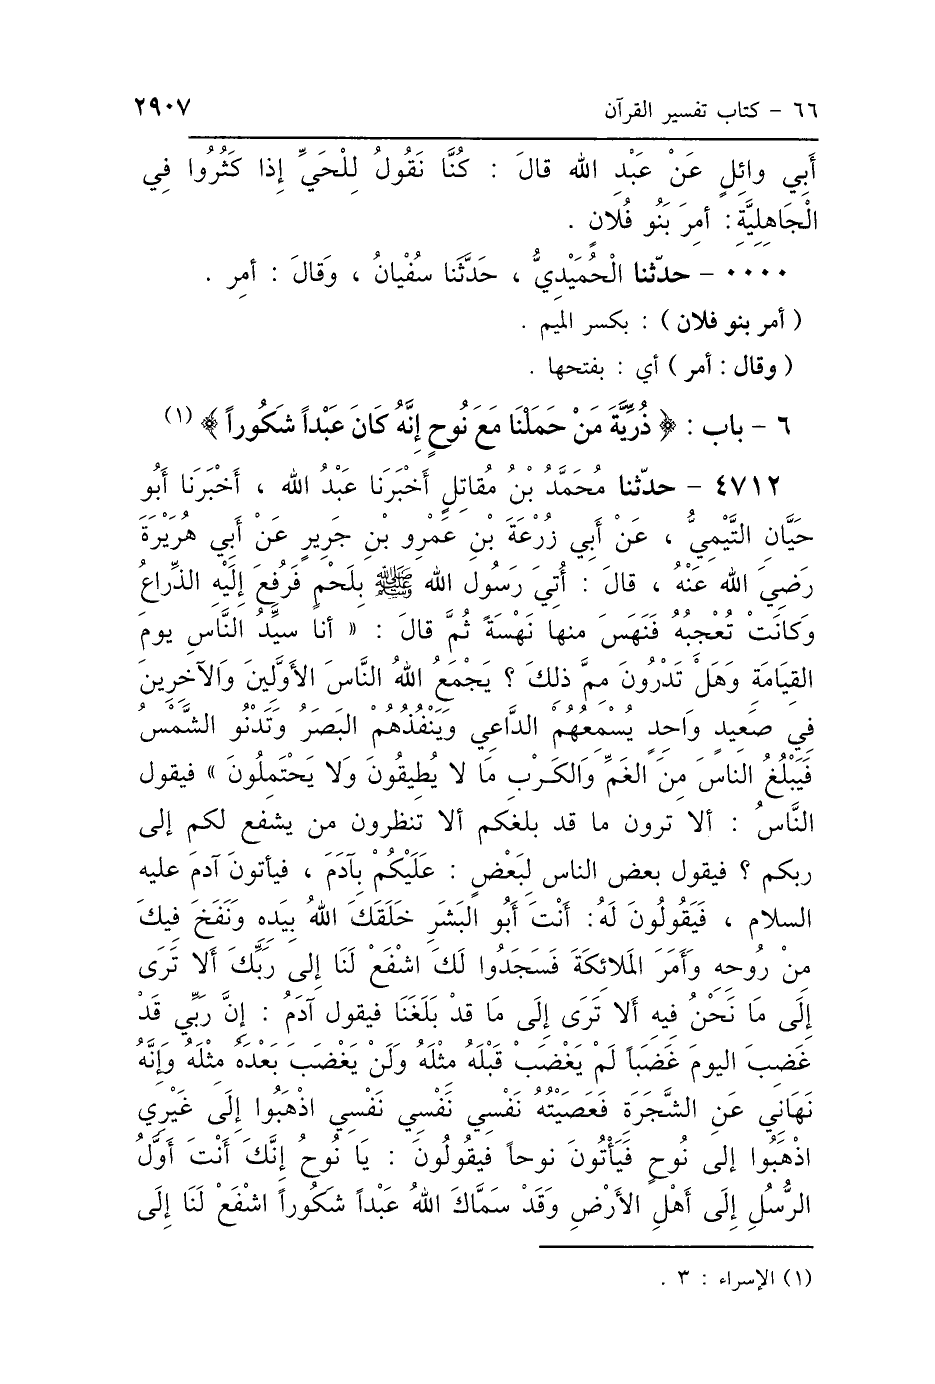 ٦٦ - كتاب تفسير القرآن ٢٩٠٧
أَبِي وائِلٍ عَنْ عَبْدِ الله قالَ : كُنَّا نَقُولُ لِلْحَيِّ إِذا كَثُرُوا فِي
الْجَاهِلِيَّةِ : أمِرَ بَنُو فُلَانٍ .
٠٠٠٠ - حدّثنا الْحُمَيْدِيُّ ، حَدَّثَنا سُفْيانُ ، وَقالَ : أمِر .
( أمر بنو فلان ) : بكسر الميم .
( وقال : أمر ) أي : بفتحها .
٦ - باب : ﴿ ذُرِّيَّةَ مَنْ حَمَلْنَا مَعَ نُوحٍ إِنَّهُ كَانَ عَبْداً شَكُوراً ﴾ (١)
٤٧١٢ - حدّثنا مُحَمَّدُ بْنُ مُقاتِلٍ أَخْبَرَنا عَبْدُ الله ، أَخْبَرَنا أَبُو
حَيَّانِ التَّيْمِيُّ ، عَنْ أَبِي زُرْعَةَ بْنِ عَمْرِو بْنِ جَرِيرٍ عَنْ أَبِي هُرَيْرَةَ
رَضِيَ الله عَنْهُ ، قالَ : أُتِيَ رَسُول الله ﷺ بِلَحْمٍ فَرُفِعَ إِلَيْهِ الذِّراعُ
وَكانَتْ تُعْجِبُهُ فَنَهَسَ منها نَهْسَةً ثُمَّ قالَ : « أنا سيِّدُ النَّاسِ يومَ
القِيَامَةِ وَهَلْ تَدْرُونَ مِمَّ ذلِكَ ؟ يَجْمَعُ اللهُ النَّاسَ الأَوَّلِينَ وَالآخِرِينَ
فِي صَعِيدٍ وَاحِدٍ يُسْمِعُهُمْ الدَّاعِي وَيَنْفُذُهُمْ البَصَرُ وَتَدْنُو الشَّمْسُ
فَيَبْلُغُ الناسَ مِنَ الغَمِّ وَالكَرْبِ مَا لا يُطِيقُونَ وَلا يَحْتَمِلُونَ » فيقول
النَّاسُ : ألا ترون ما قد بلغكم ألا تنظرون من يشفع لكم إلى
ربكم ؟ فيقول بعض الناس لِبَعْضٍ : عَلَيْكُمْ بِآدَمَ ، فيأتونَ آدمَ عليه
السلام ، فَيَقُولُونَ لَهُ : أَنْتَ أَبُو البَشَرِ خَلَقَكَ اللهُ بِيَدِهِ وَنَفَخَ فِيكَ
مِنْ رُوحِهِ وأَمَرَ المَلائِكَةَ فَسَجَدُوا لَكَ اشْفَعْ لَنَا إلى رَبِّكَ ألا تَرَى
إِلَى مَا نَحْنُ فِيهِ ألا تَرَى إِلَى مَا قدْ بَلَغَنَا فيقول آدَمُ : إِنَّ رَبِّي قَدْ
غَضِبَ اليومَ غَضَباً لَمْ يَغْضَبْ قَبْلَهُ مثْلَهُ وَلَنْ يَغْضَبَ بَعْدَهُ مثْلَهُ وَإنَّهُ
نَهَانِي عَنِ الشَّجَرَةِ فَعَصَيْتُهُ نَفْسِي نَفْسِي نَفْسِي اذْهَبُوا إِلَى غَيْرِي
اذْهَبُوا إلى نُوحٍ فَيَأْتُونَ نوحاً فيقُولُونَ : يا نُوحُ إِنَّكَ أَنْتَ أَوَّلُ
الرُّسُلِ إِلَى أَهْلِ الأَرْضِ وَقَدْ سَمَّاكَ اللهُ عَبْداً شَكُوراً اشْفَعْ لَنَا إِلَى
(١) الإسراء : ٣ .